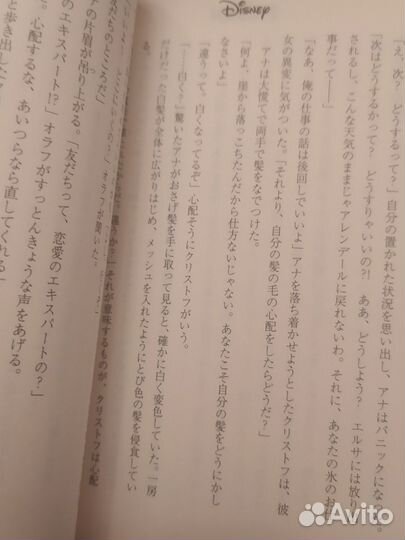 Disney
「え、次？　どうするかって？　どうすりゃいいの？！　ああ、どうしよう？　エルサには放り
「次はどうするかって？」自分の置かれた状況を思い出し、アナはパニックにな
されるし、こんな天気のままじゃアレンデールに戻れないわ。それに、あなたの氷のお
事だって――」
「なあ、俺の仕事の話は後回しでいいよ」アナを落ち着かせようとしたクリストフは、彼
女の異変に気がついた。「それより、自分の髪の毛の心配をしたらどうだ？」
アナは大慌てで両手で髪をなでつけた。
「何よ、崖から落っこちたんだから仕方ないじゃない。あなたこそ自分の髪をどうにかし
なさいよ」
「違うって。白くなってるぞ」心配そうにクリストフがいう。
「……白く？」驚いたアナがおさげ髪を手に取って見ると、確かに白く変色していた。一房
だけだった白髪が全体に広がりはじめ、メッシュを入れたようにとび色の髪を侵食してい
る。
それが意味するものが、クリストフは心配
オラフが聞いた。
友だちのところだ」
の片眉が吊り上がる。「友だちって、恋愛のエキスパートの？」
のエキスパート！？」オラフがすっとんきょうな声をあげる。
。心配するな、あいつらなら直してくれる」
と歩き出した
Avito